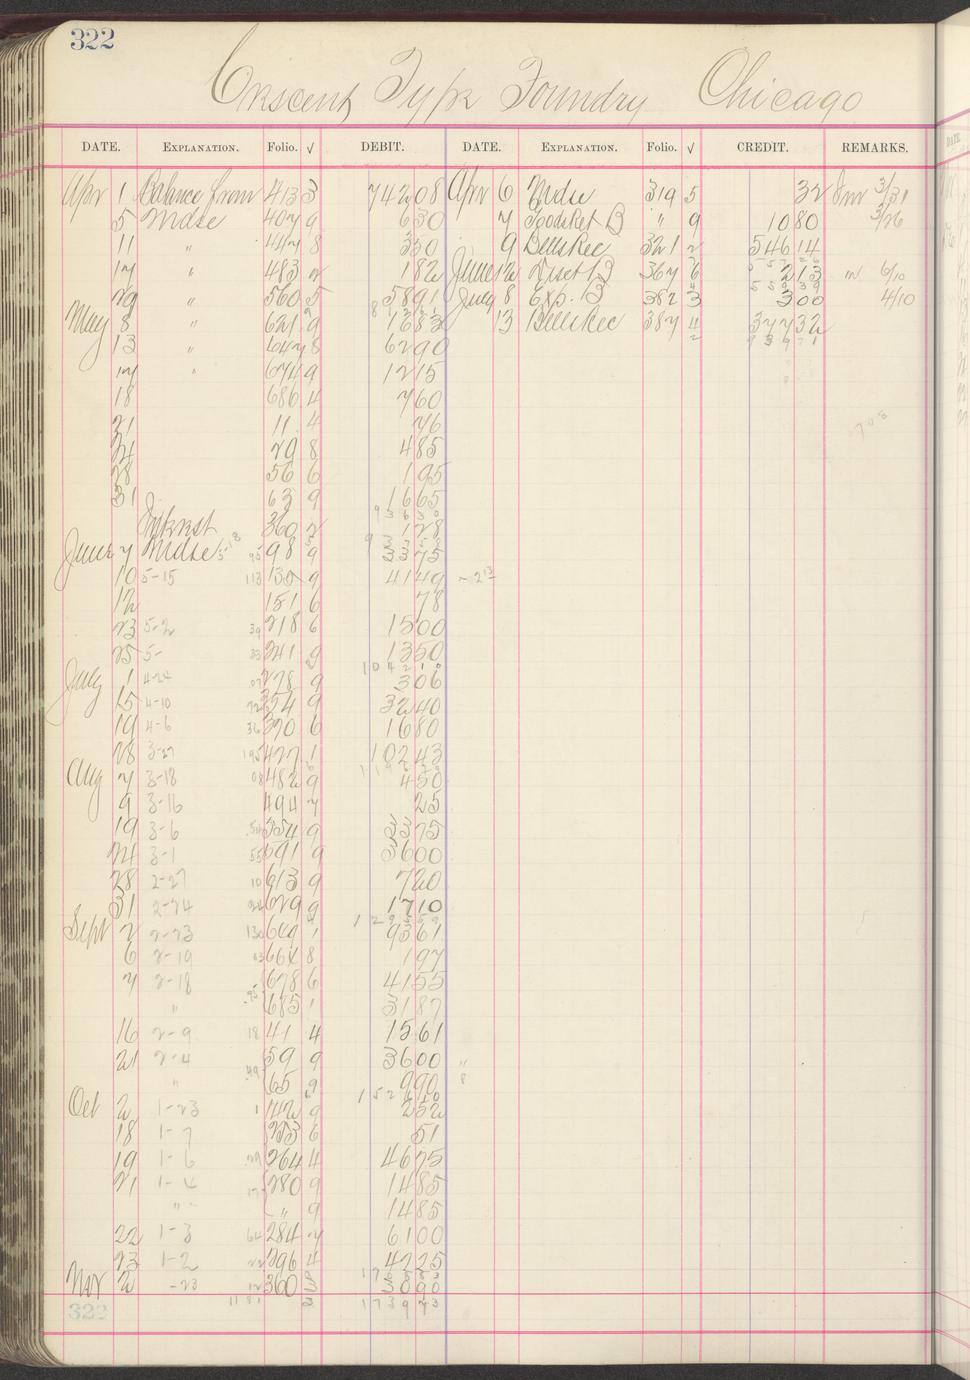 322
Crescent Type Foundry Chicago
DATE. EXPLANATION. Folio. √ DEBIT. DATE. EXPLANATION. Folio. √ CREDIT. REMARKS.
Apr 1 Balance from 413 3 742 08 Apr 6 Mdse 319 5 32 Inv 3/31
5 Mdse 407 9 6 30 7 B " 9 10 80 3/26
11 " 447 8 3 50 9 Bills Rec 321 2 546 14
17 " 483 2 1 82 June 12 B 367 6 2 13 " 6/10
29 " 560 5 58 91 July 8 Exp. B 382 3 3 00 4/10
May 8 " 621 9 16 83 13 Bills Rec 387 4 377 32
13 " 647 8 62 90
17 " 674 9 12 15
18 686 4 7 60
21 11 4 76
24 29 8 4 85
28 56 6 1 95
31 63 9 16 65
Interest 360 2 1 28
June 7 Mdse 98 9 33 75
10 5-15 135 9 41 49
12 151 6 78
23 5-2 218 6 15 00
25 5- 241 9 13 50
July 1 4-24 278 9 3 06
15 4-10 354 9 32 40
19 4-6 370 6 16 80
28 3-27 427 1 102 43
Aug 7 3-18 482 9 4 50
9 3-16 494 7 25
19 3-6 554 9 23 75
24 3-1 591 9 36 00
28 2-27 613 9 7 20
31 2-24 629 9 17 10
Sept 2 2-23 641 1 93 61
6 2-19 664 8 1 97
7 2-18 678 6 41 55
" 685 1 31 87
16 2-9 41 4 15 61
21 2-4 59 9 36 00
" 65 9 9 90
Oct 2 1-23 142 9 2 52
18 1-7 253 6 51
19 1-6 264 4 46 75
21 1-4 280 9 14 85
" " " 9 14 85
22 1-3 284 7 61 00
23 1-2 296 4 42 25
Nov 2 -23 360 2 30 90
322 11 81 1739 73